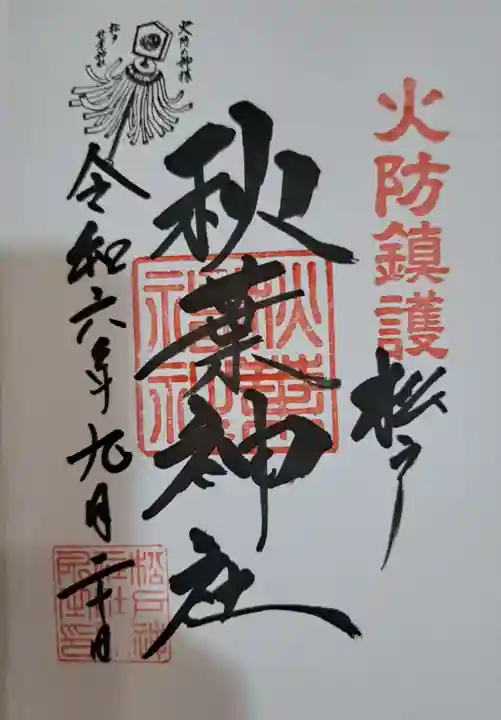 火防鎮護
松戸
秋葉神社
秋葉神社
火防の神様
松戸
秋葉神社
令和六年九月二十日